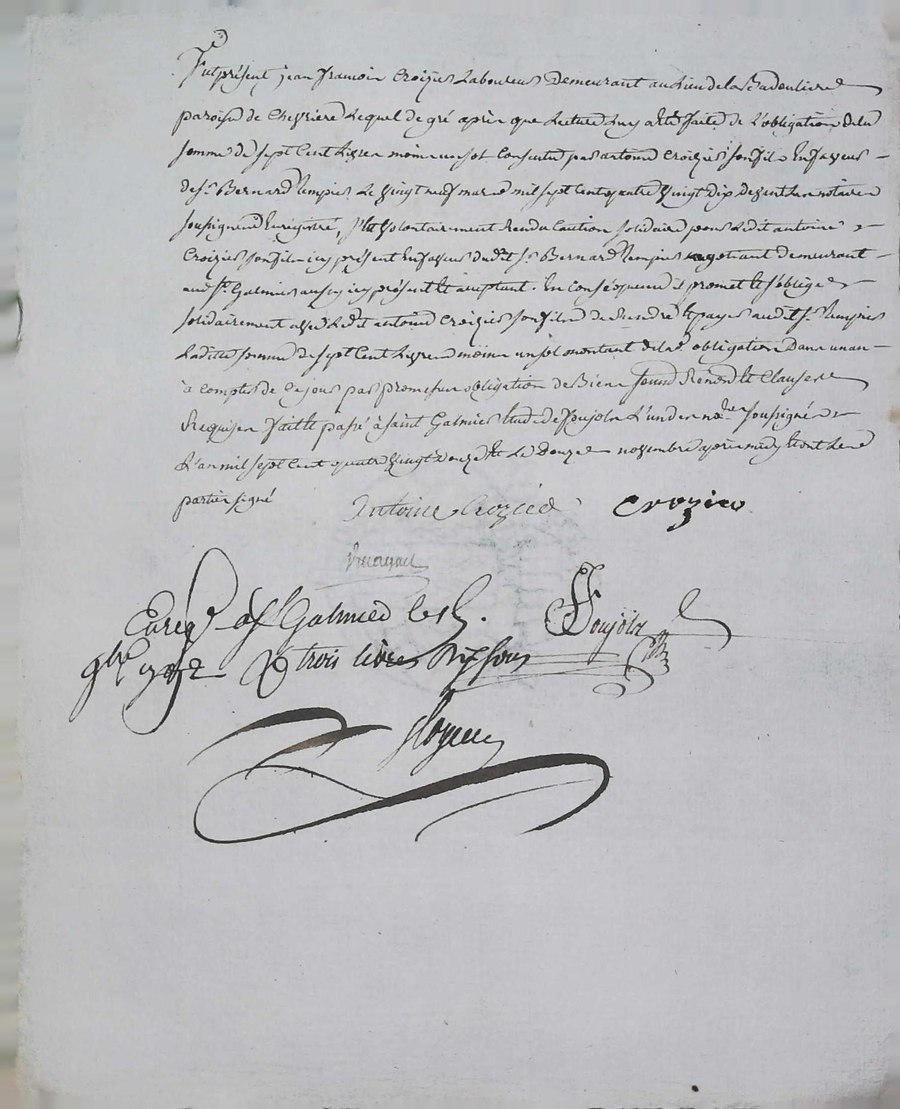 Fut présent jean francois Croizier Laboureur Demeurant au lieu de la Badoulière
paroisse de Chevrière Lequel de gré après que Lecture luy a été faite de L'obligation de la
somme de sept Cent Livres moins un sol Consentie par antoine Croizier son fils En faveur
de Sr Bernard Le vingt neuf mars mil sept cent quatre vingt dix devant Les notaires
soussignés Enregistré, s'est volontairement Rendu Caution solidaire pour Ledit antoine
Croizier son fils icy présent En faveur dudt Sr Bernard negotiant demeurant
au St Galmier aussy icy présent et acceptant. En conséquence il promet et s'oblige
solidairement avec Ledt antoine Croizier son fils de Rendre et payer audit Sr
Ladite somme de sept Cent Livres moins un sol montant de lad. obligation Dans un an
à compter de Ce jour par promesse obligation de Biens soumis Renon. et Clauses
Requises fait et passé à saint Galmier Etude de Poujols L'un des nores soussigné
L'an mil sept cent quatre vingt douze et Le douze novembre après midy et ont Les
parties signé
Antoine Crozier Crozier
Enregé à St Galmier le 15.
9bre 1792 R trois livres dix sous
Poujols